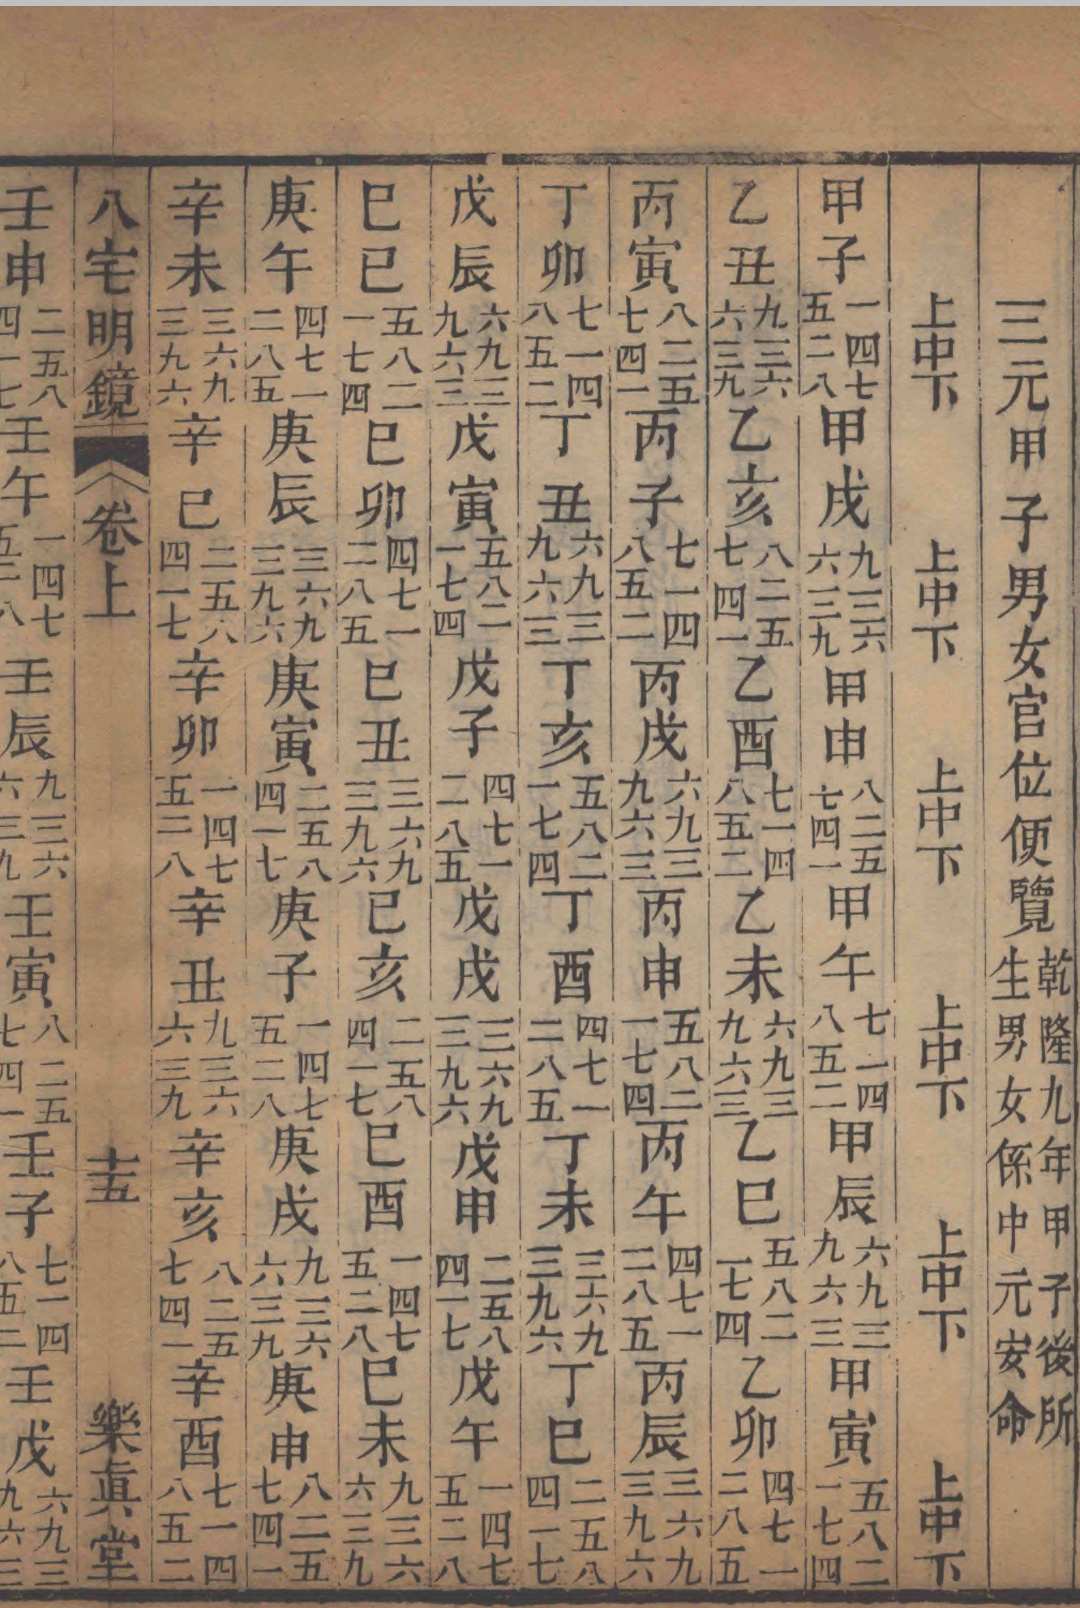 三元甲子男女官位便覽 乾隆九年甲子後所生男女係中元安命
上中下 上中下 上中下 上中下 上中下 上中下
甲子 一四七 五二八 甲戌 九三六 六三九 甲申 八二五 七四一 甲午 七一四 八五二 甲辰 六九三 九六三 甲寅 五八二 一七四
乙丑 九三六 六三九 乙亥 八二五 七四一 乙酉 七一四 八五二 乙未 六九三 九六三 乙巳 五八二 一七四 乙卯 四七一 二八五
丙寅 八二五 七四一 丙子 七一四 八五二 丙戌 六九三 九六三 丙申 五八二 一七四 丙午 四七一 二八五 丙辰 三六九 三九六
丁卯 七一四 八五二 丁丑 六九三 九六三 丁亥 五八二 一七四 丁酉 四七一 二八五 丁未 三六九 三九六 丁巳 二五八 四一七
戊辰 六九三 九六三 戊寅 五八二 一七四 戊子 四七一 二八五 戊戌 三六九 三九六 戊申 二五八 四一七 戊午 一四七 五二八
巳巳 五八二 一七四 巳卯 四七一 二八五 巳丑 三六九 三九六 巳亥 二五八 四一七 巳酉 一四七 五二八 巳未 九三六 六三九
庚午 四七一 二八五 庚辰 三六九 三九六 庚寅 二五八 四一七 庚子 一四七 五二八 庚戌 九三六 六三九 庚申 八二五 七四一
辛未 三六九 三九六 辛巳 二五八 四一七 辛卯 一四七 五二八 辛丑 九三六 六三九 辛亥 八二五 七四一 辛酉 七一四 八五二
八宅明鏡 卷上 十五 樂眞堂
壬申 二五八 四一七 壬午 一四七 五二八 壬辰 九三六 六三九 壬寅 八二五 七四一 壬子 七一四 八五二 壬戌 六九三 九六三